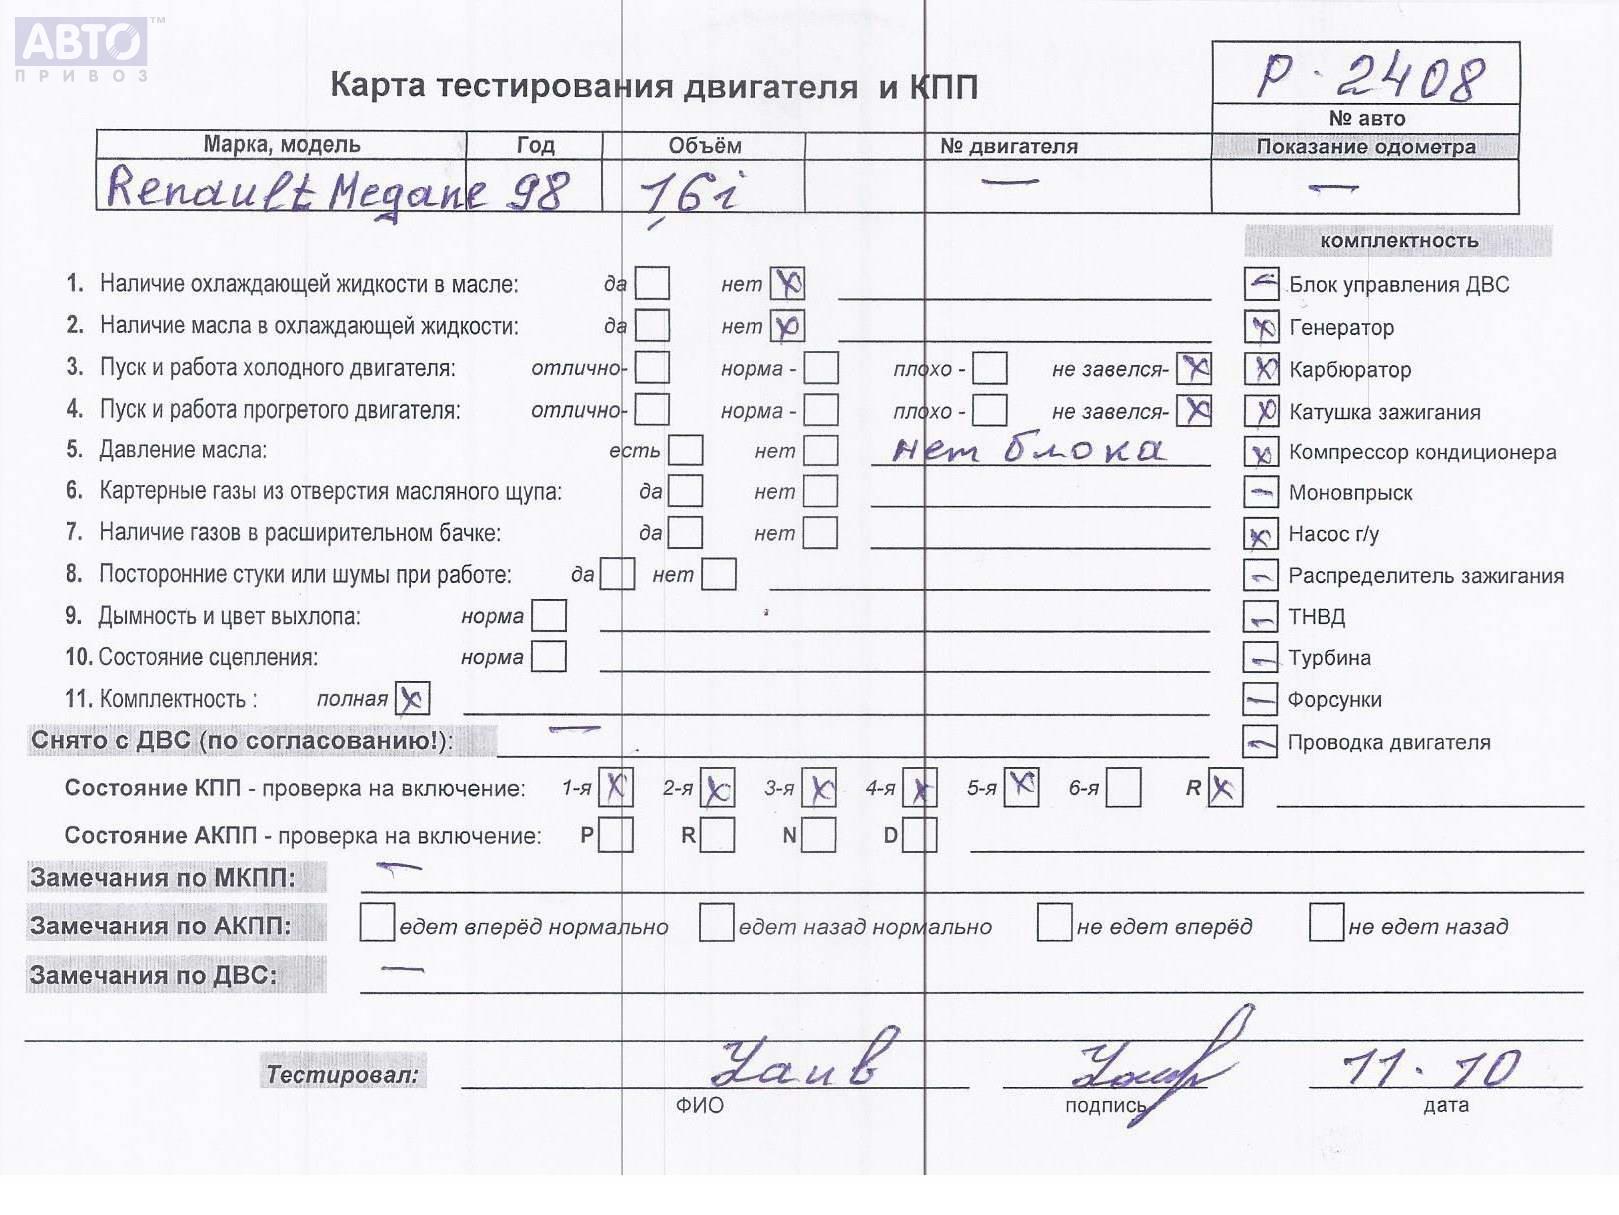 АВТО™
ПРИВОЗ
Р-2408
Карта тестирования двигателя и КПП
№ авто
Марка, модель Год Объём № двигателя Показание одометра
Renault Megane 98 1,6i — —
комплектность
1. Наличие охлаждающей жидкости в масле: да нет x
Блок управления ДВС
2. Наличие масла в охлаждающей жидкости: да нет x
Генератор x
3. Пуск и работа холодного двигателя: отлично- норма - плохо - не завелся- x
Карбюратор x
4. Пуск и работа прогретого двигателя: отлично- норма - плохо - не завелся- x
Катушка зажигания x
5. Давление масла: есть нет нет блока
Компрессор кондиционера x
6. Картерные газы из отверстия масляного щупа: да нет
Моновпрыск
7. Наличие газов в расширительном бачке: да нет
Насос г/у x
8. Посторонние стуки или шумы при работе: да нет
Распределитель зажигания
9. Дымность и цвет выхлопа: норма
ТНВД
10. Состояние сцепления: норма
Турбина
11. Комплектность : полная x
Форсунки
Снято с ДВС (по согласованию!): —
Проводка двигателя
Состояние КПП - проверка на включение: 1-я x 2-я x 3-я x 4-я x 5-я x 6-я R x
Состояние АКПП - проверка на включение: P R N D
Замечания по МКПП: —
Замечания по АКПП: едет вперёд нормально едет назад нормально не едет вперёд не едет назад
Замечания по ДВС: —
Тестировал: 11.10
ФИО подпись дата